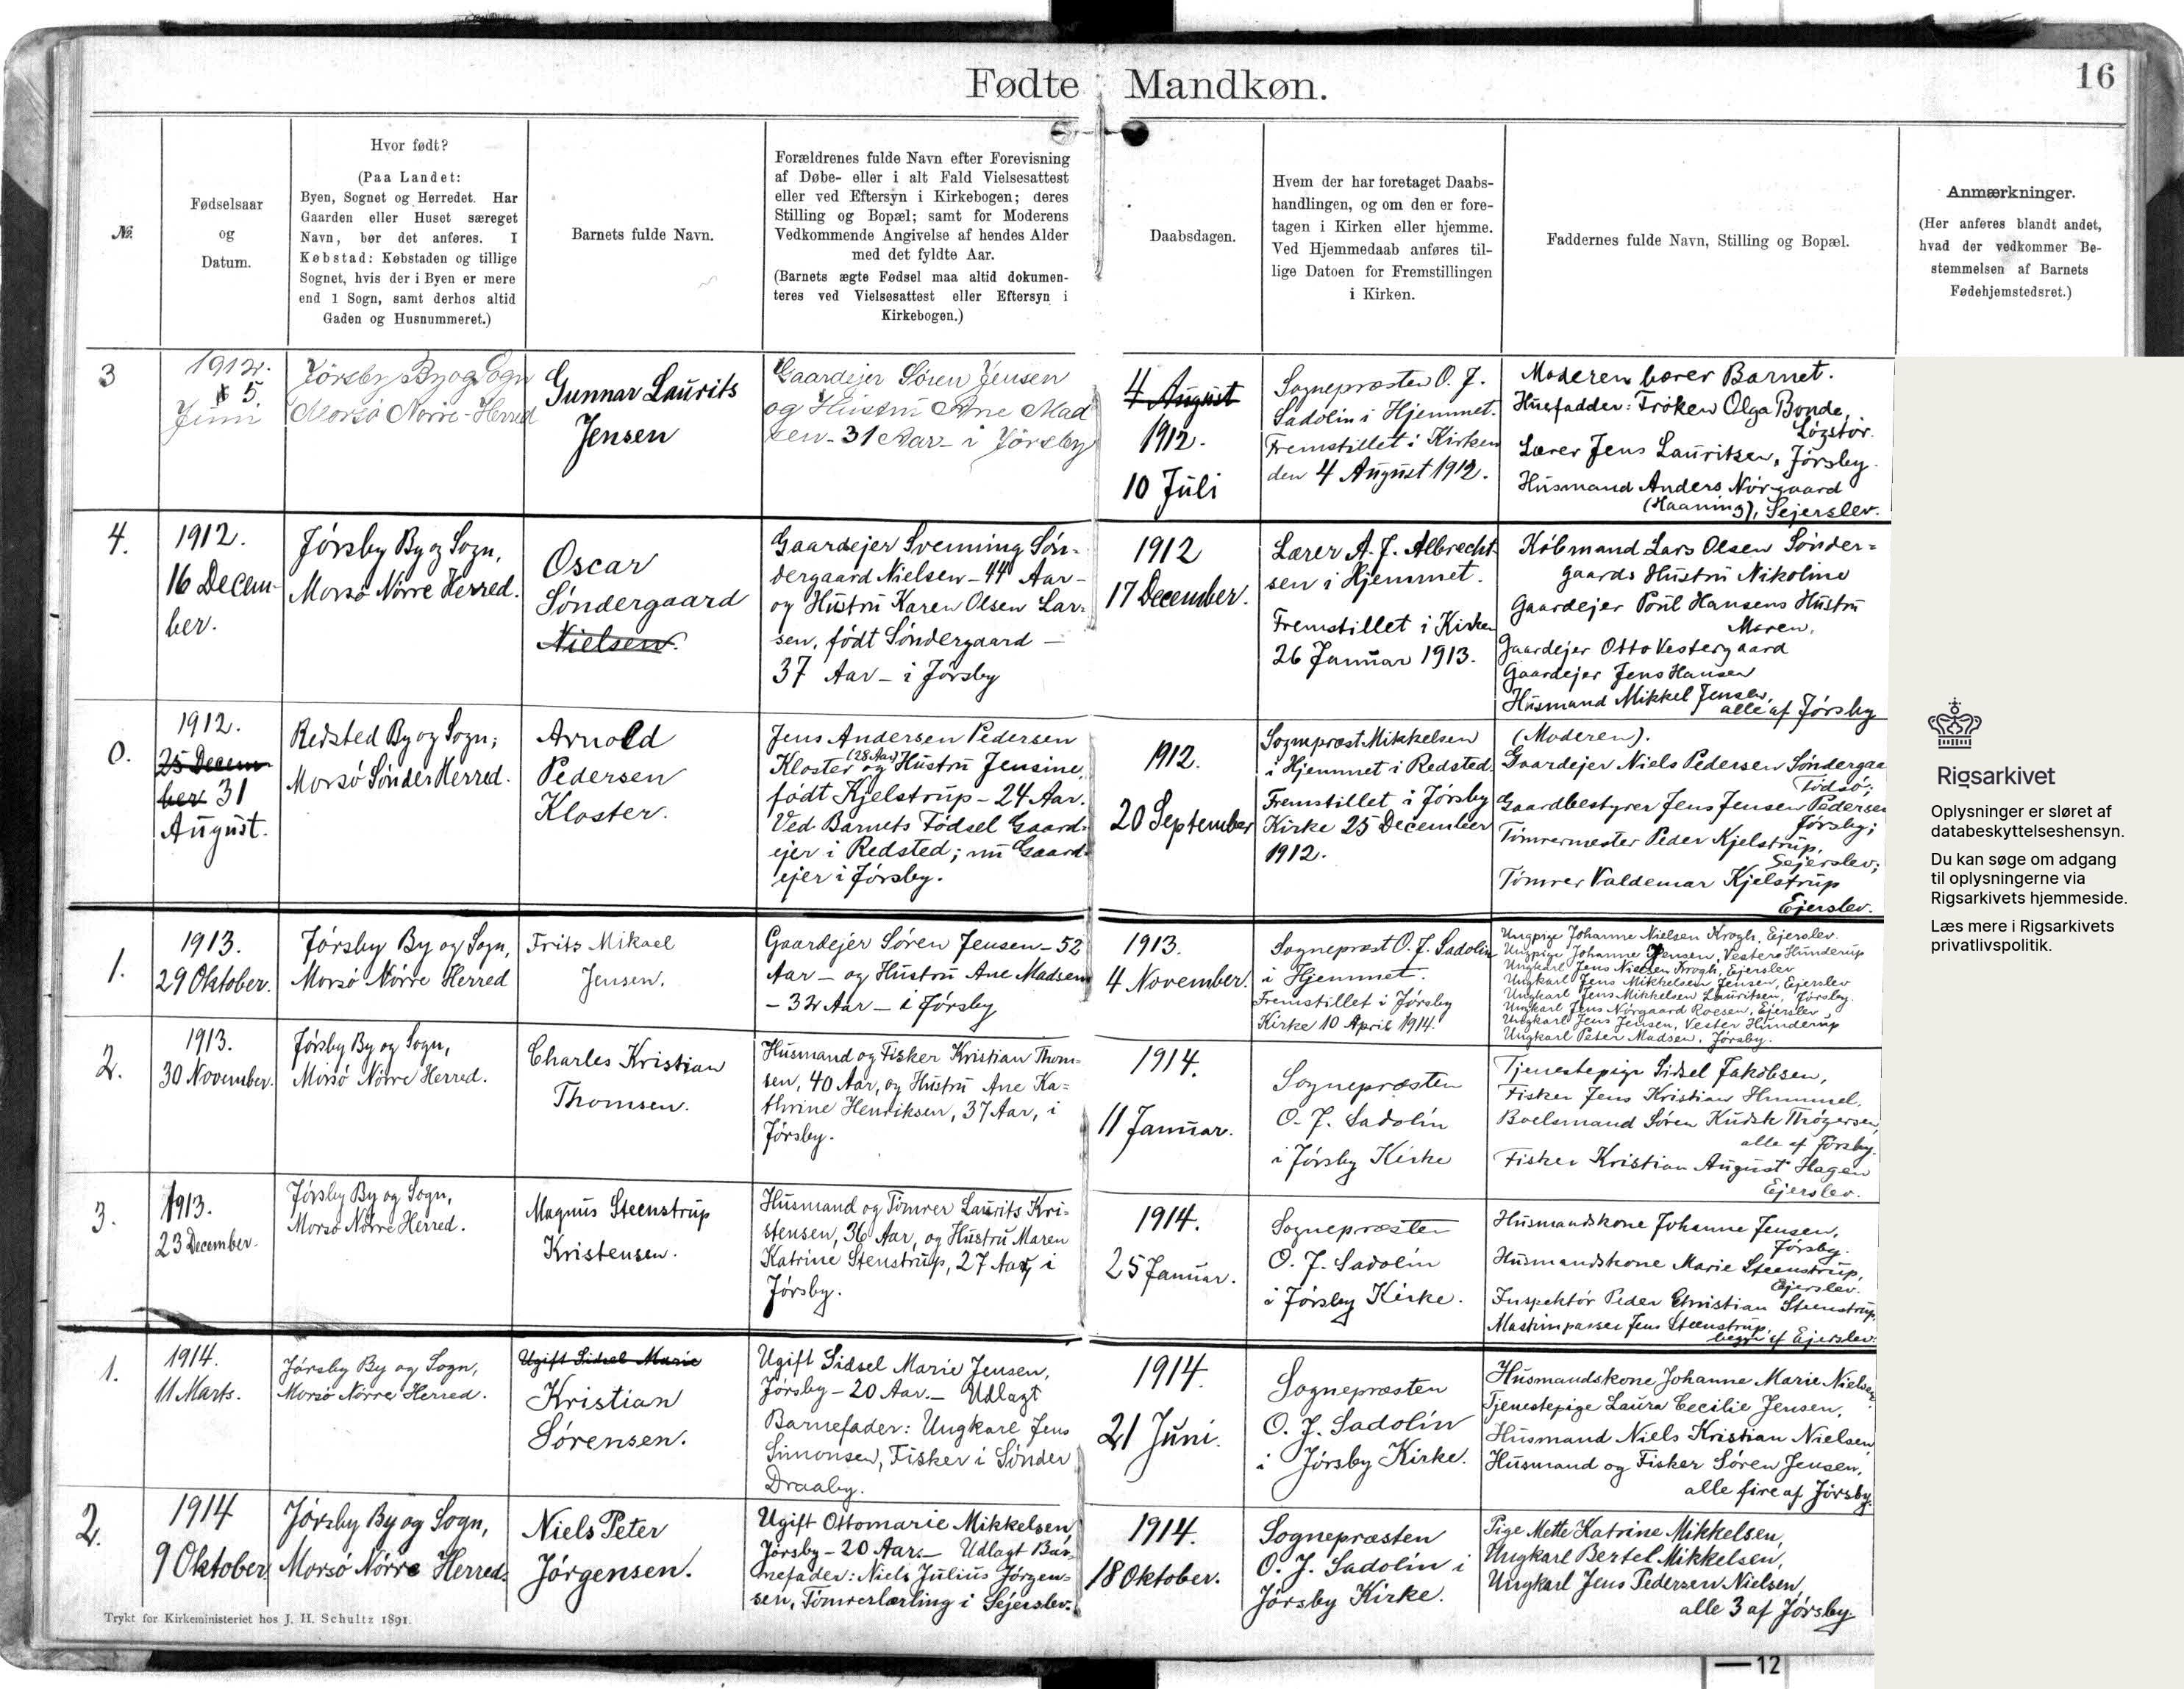 Fødte Mandkøn.
16
No.
Fødselsaar
og
Datum.
Hvor født?
(Paa Landet:
Byen, Sognet og Herredet. Har
Gaarden eller Huset særeget
Navn, bør det anføres. I
Købstad: Købstaden og tillige
Sognet, hvis der i Byen er mere
end 1 Sogn, samt derhos altid
Gaden og Husnummeret.)
Barnets fulde Navn.
Forældrenes fulde Navn efter Forevisning
af Døbe- eller i alt Fald Vielsesattest
eller ved Eftersyn i Kirkebogen; deres
Stilling og Bopæl; samt for Moderens
Vedkommende Angivelse af hendes Alder
med det fyldte Aar.
(Barnets ægte Fødsel maa altid dokumen-
teres ved Vielsesattest eller Eftersyn i
Kirkebogen.)
Daabsdagen.
Hvem der har foretaget Daabs-
handlingen, og om den er fore-
tagen i Kirken eller hjemme.
Ved Hjemmedaab anføres til-
lige Datoen for Fremstillingen
i Kirken.
Faddernes fulde Navn, Stilling og Bopæl.
Anmærkninger.
(Her anføres blandt andet,
hvad der vedkommer Be-
stemmelsen af Barnets
Fødehjemstedsret.)
3
1912.
5.
Juni
Jørsby By og Sogn
Morsø Nörre-Herred
Gunnar Laurits
Jensen
Gaardejer Søren Jensen
og Hustru Ane Mad
sen - 31 Aar - i Jörsby
4 August
1912.
10 Juli
Sognepræsten O. J.
Sadolin i Hjemmet.
Fremstillet i Kirken
den 4 August 1912.
Moderen bærer Barnet.
Husfadder: Frøken Olga Bonde,
Løgstør.
Lærer Jens Lauritsen, Jørsby.
Husmand Anders Nørgaard
(Haaning), Sejerslev.
4.
1912.
16 Decem-
ber.
Jørsby By og Sogn,
Morsø Nørre Herred.
Oscar
Søndergaard
Nielsen.
Gaardejer Svenning Søn-
dergaard Nielsen - 44 Aar -
og Hustru Karen Olsen Lar-
sen, født Søndergaard -
37 Aar - i Jørsby
1912
17 December.
Lærer A. J. Albrecht-
sen i Hjemmet.
Fremstillet i Kirken
26 Januar 1913.
Købmand Lars Olsen Sønder-
gaards Hustru Nikoline
Gaardejer Poul Hansens Hustru
Maren,
Gaardejer Otto Vestergaard
Gaardejer Jens Hansen
Husmand Mikkel Jensen,
alle af Jørsby
0.
1912.
25 Decem-
ber 31
August.
Redsted By og Sogn;
Morsø Sønder Herred.
Arnold
Pedersen
Kloster.
Jens Andersen Pedersen
Kloster (28 Aar) og Hustru Jensine,
født Kjelstrup - 24 Aar.
Ved Barnets Fødsel Gaard-
ejer i Redsted; nu Gaard-
ejer i Jørsby.
1912.
20 September
Sognepræst Mikkelsen
i Hjemmet i Redsted.
Fremstillet i Jørsby
Kirke 25 December
1912.
(Moderen).
Gaardejer Niels Pedersen Søndergaa
Tødsø;
Gaardbestyrer Jens Jensen Pedersen
Jørsby;
Tømrermester Peder Kjelstrup,
Sejerslev;
Tømrer Valdemar Kjelstrup
Ejerslev.
1.
1913.
29 Oktober.
Jørsby By og Sogn,
Morsø Nørre Herred
Frits Mikael
Jensen.
Gaardejer Søren Jensen - 52
Aar - og Hustru Ane Madsen
- 32 Aar - i Jørsby
1913.
4 November.
Sognepræst O. J. Sadolin
i Hjemmet.
Fremstillet i Jørsby
Kirke 10 April 1914.
Ungpige Johanne Nielsen Krogh, Ejerslev.
Ungpige Johanne Jensen, Vester Hunderup
Ungkarl Jens Nielsen Krogh, Ejerslev
Ungkarl Jens Mikkelsen Jensen, Ejerslev
Ungkarl Jens Mikkelsen Lauritsen, Jørsby.
Ungkarl Jens Nørgaard Roesen, Ejerslev
Ungkarl Jens Jensen, Vester Hunderup
Ungkarl Peter Madsen, Jørsby.
2.
1913.
30 November.
Jørsby By og Sogn,
Morsø Nørre Herred.
Charles Kristian
Thomsen.
Husmand og Fisker Kristian Thom-
sen, 40 Aar, og Hustru Ane Ka-
thrine Henriksen, 37 Aar, i
Jørsby.
1914.
11 Januar.
Sognepræsten
O. J. Sadolin
i Jørsby Kirke
Tjenestepige Sidsel Jakobsen,
Fisker Jens Kristian Hummel.
Boelsmand Søren Kudsk Thøgersen,
alle af Jørsby.
Fisker Kristian August Hagen
Ejerslev.
3.
1913.
23 December.
Jørsby By og Sogn,
Morsø Nørre Herred.
Magnus Steenstrup
Kristensen.
Husmand og Tømrer Laurits Kri-
stensen, 36 Aar, og Hustru Maren
Katrine Stenstrup, 27 Aar, i
Jørsby.
1914.
25 Januar.
Sognepræsten
O. J. Sadolin
i Jørsby Kirke.
Husmandskone Johanne Jensen,
Jørsby.
Husmandskone Marie Steenstrup,
Ejerslev.
Inspektør Peder Christian Steenstrup,
Maskinpasser Jens Steenstrup,
begge af Ejerslev.
1.
1914.
11 Marts.
Jørsby By og Sogn,
Morsø Nørre Herred.
Ugift Sidsel Marie
Kristian
Sørensen.
Ugift Sidsel Marie Jensen,
Jørsby - 20 Aar. - Udlagt
Barnefader: Ungkarl Jens
Simonsen, Fisker i Sønder
Draaby.
1914.
21 Juni.
Sognepræsten
O. J. Sadolin
i Jørsby Kirke.
Husmandskone Johanne Marie Nielsen,
Tjenestepige Laura Cecilie Jensen,
Husmand Niels Kristian Nielsen,
Husmand og Fisker Søren Jensen,
alle fire af Jørsby.
2.
1914
9 Oktober
Jørsby By og Sogn,
Morsø Nørre Herred.
Niels Peter
Jørgensen.
Ugift Ottomarie Mikkelsen,
Jørsby - 20 Aar. - Udlagt Bar-
nefader: Niels Julius Jörgen-
sen, Tømrerlærling i Sejerslev.
1914.
18 Oktober.
Sognepræsten
O. J. Sadolin i
Jørsby Kirke.
Pige Mette Katrine Mikkelsen,
Ungkarl Bertel Mikkelsen,
Ungkarl Jens Pedersen Nielsen,
alle 3 af Jørsby
Trykt for Kirkeministeriet hos J. H. Schultz 1891.
12
Rigsarkivet
Oplysninger er sløret af
databeskyttelseshensyn.
Du kan søge om adgang
til oplysningerne via
Rigsarkivets hjemmeside.
Læs mere i Rigsarkivets
privatlivspolitik.